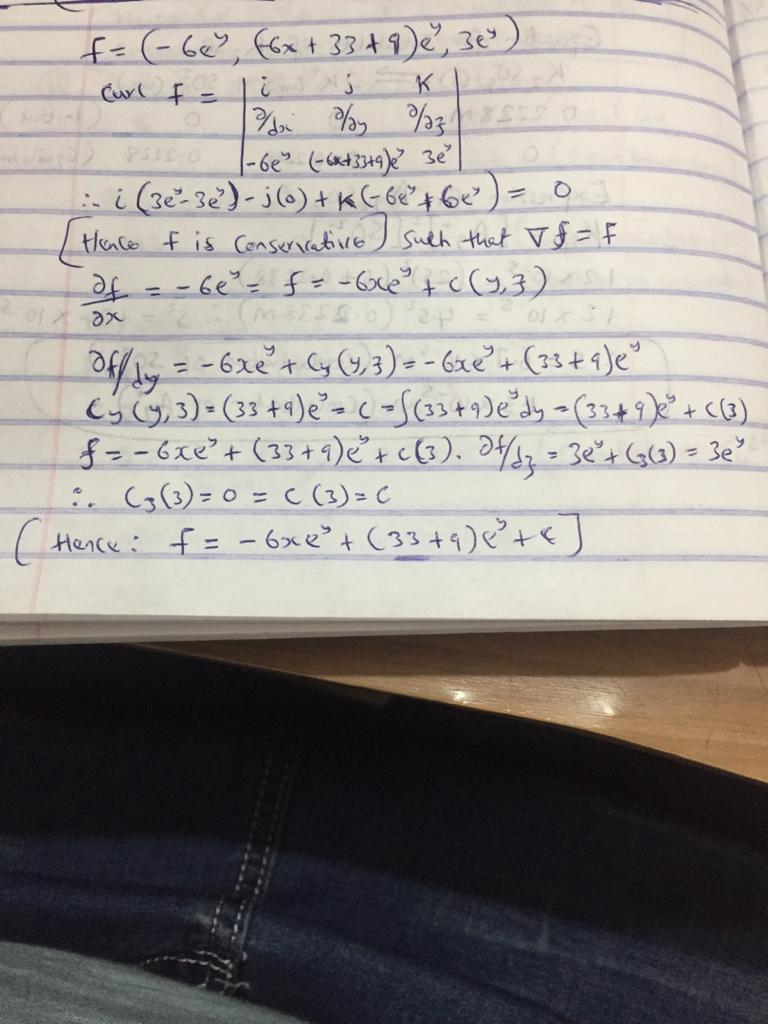 f = (-6e^y, (-6x + 33 + 9)e^y, 3e^y)
Curl f = | i j K |
∂/dx ∂/∂y ∂/∂z
-6e^y (-6x+33+9)e^y 3e^y
∴ i (3e^y - 3e^y) - j(0) + K(-6e^y + 6e^y) = 0
[Hence f is Conservative] Such that ∇f = F
∂f/∂x = -6e^y = f = -6xe^y + c(y,z)
∂f/dy = -6xe^y + Cy(y,3) = -6xe^y + (33+9)e^y
Cy(y,3) = (33+9)e^y = C = ∫(33+9)e^y dy = (33+9)e^y + C(3)
f = -6xe^y + (33+9)e^y + c(3). ∂f/dz = 3e^y + C3(3) = 3e^y
∴ C3(3) = 0 = C(3) = C
(Hence: f = -6xe^y + (33+9)e^y + c]